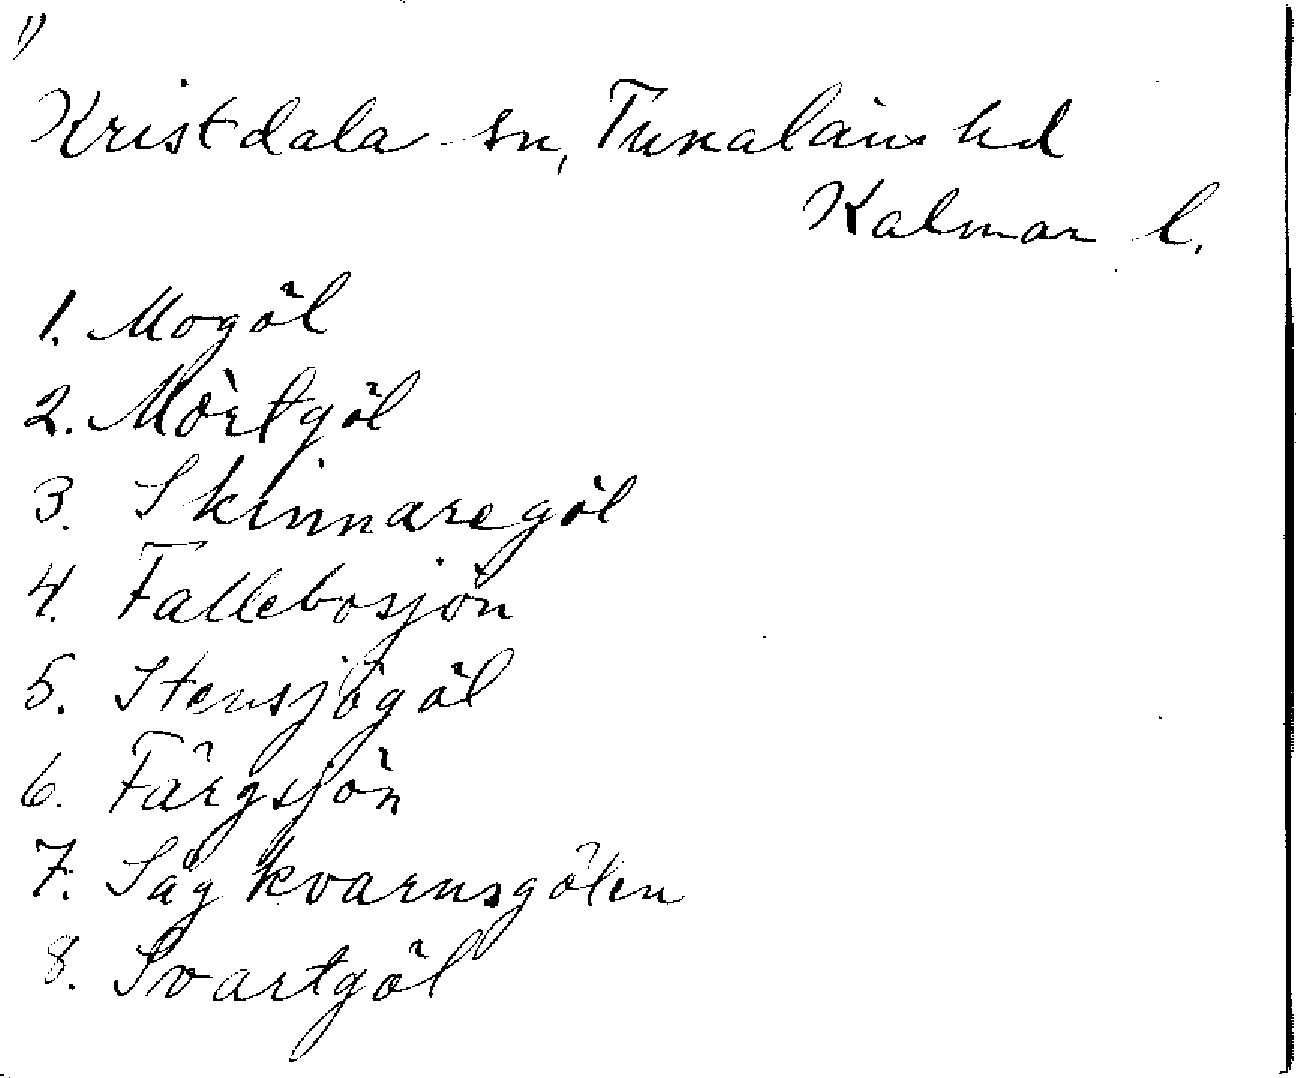 1)
Kristdala sn, Tunaläns hd
Kalmar l.
1. Mogöl
2. Mörtgöl
3. Skinnaregöl
4. Fallebosjön
5. Stensjögöl
6. Färgsjön
7. Såg kvarnsgölen
8. Svartgöl